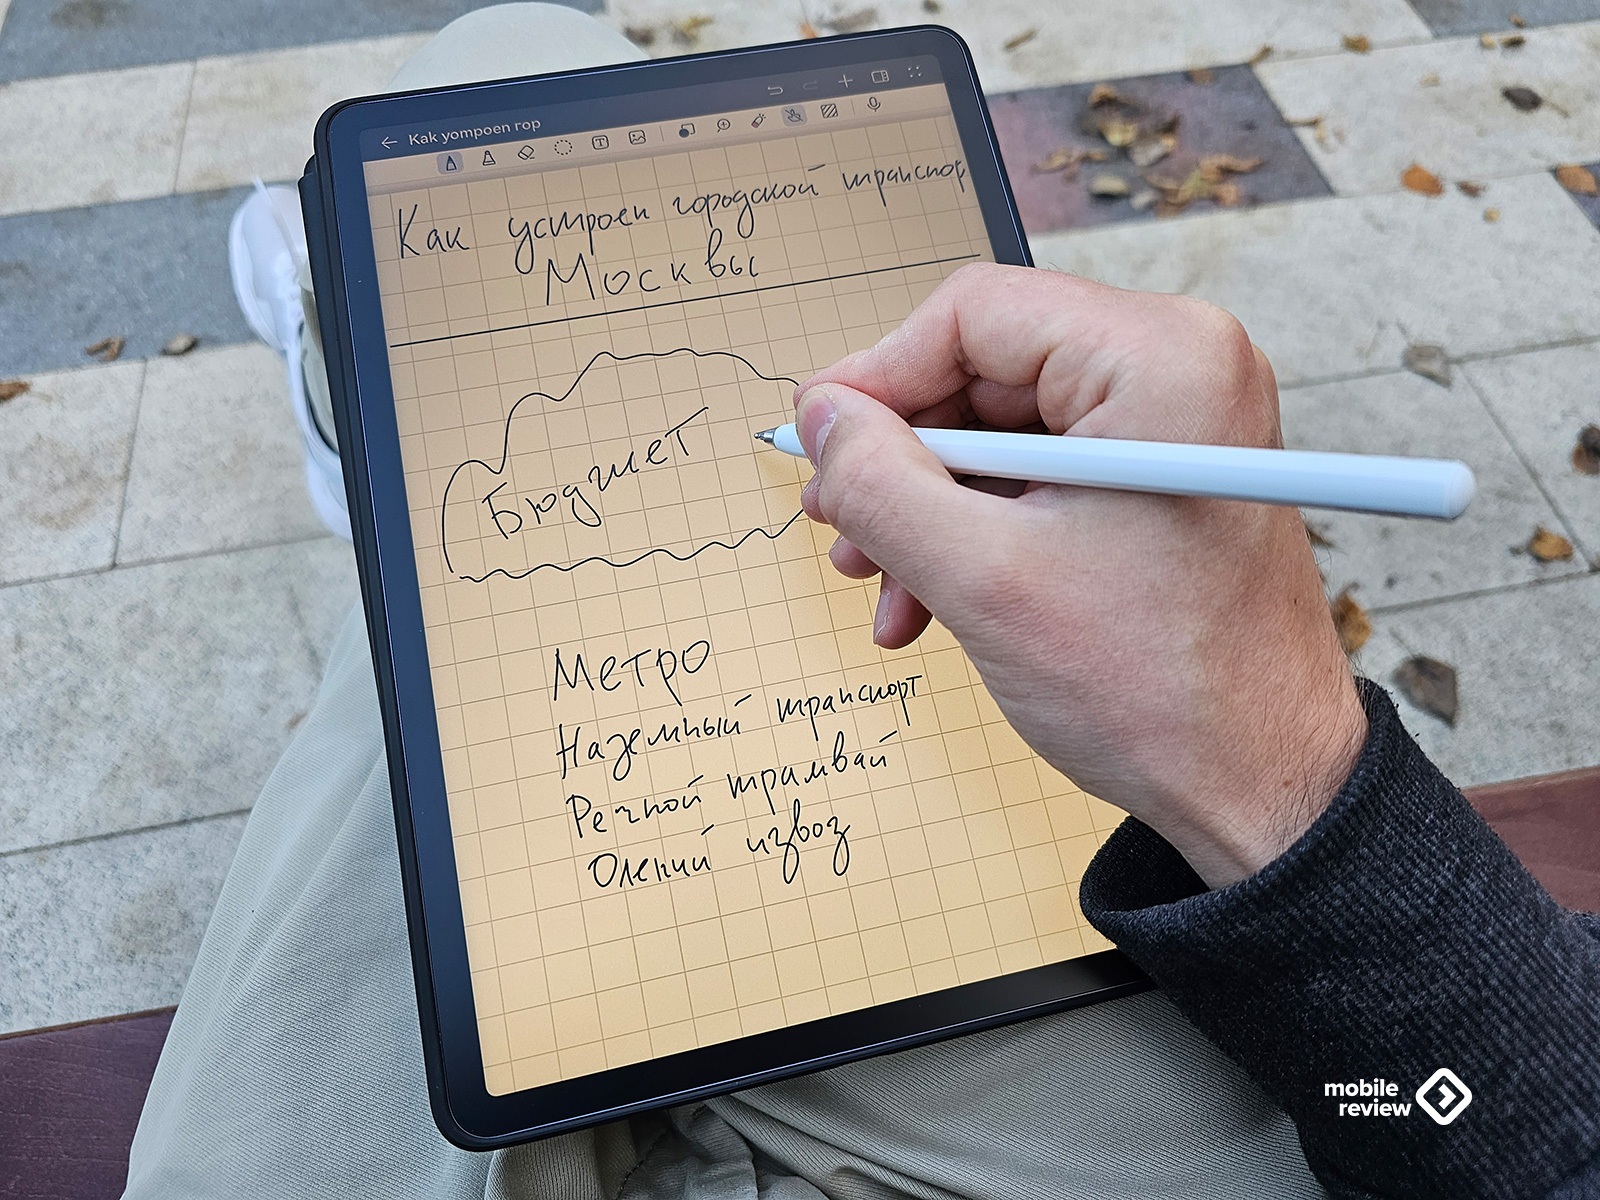 Kak yompoen гор
Как устроен городской транспор
Москвы
Бюджет
Метро
Наземный транспорт
Речной трамвай
Олений извоз
mobile
review